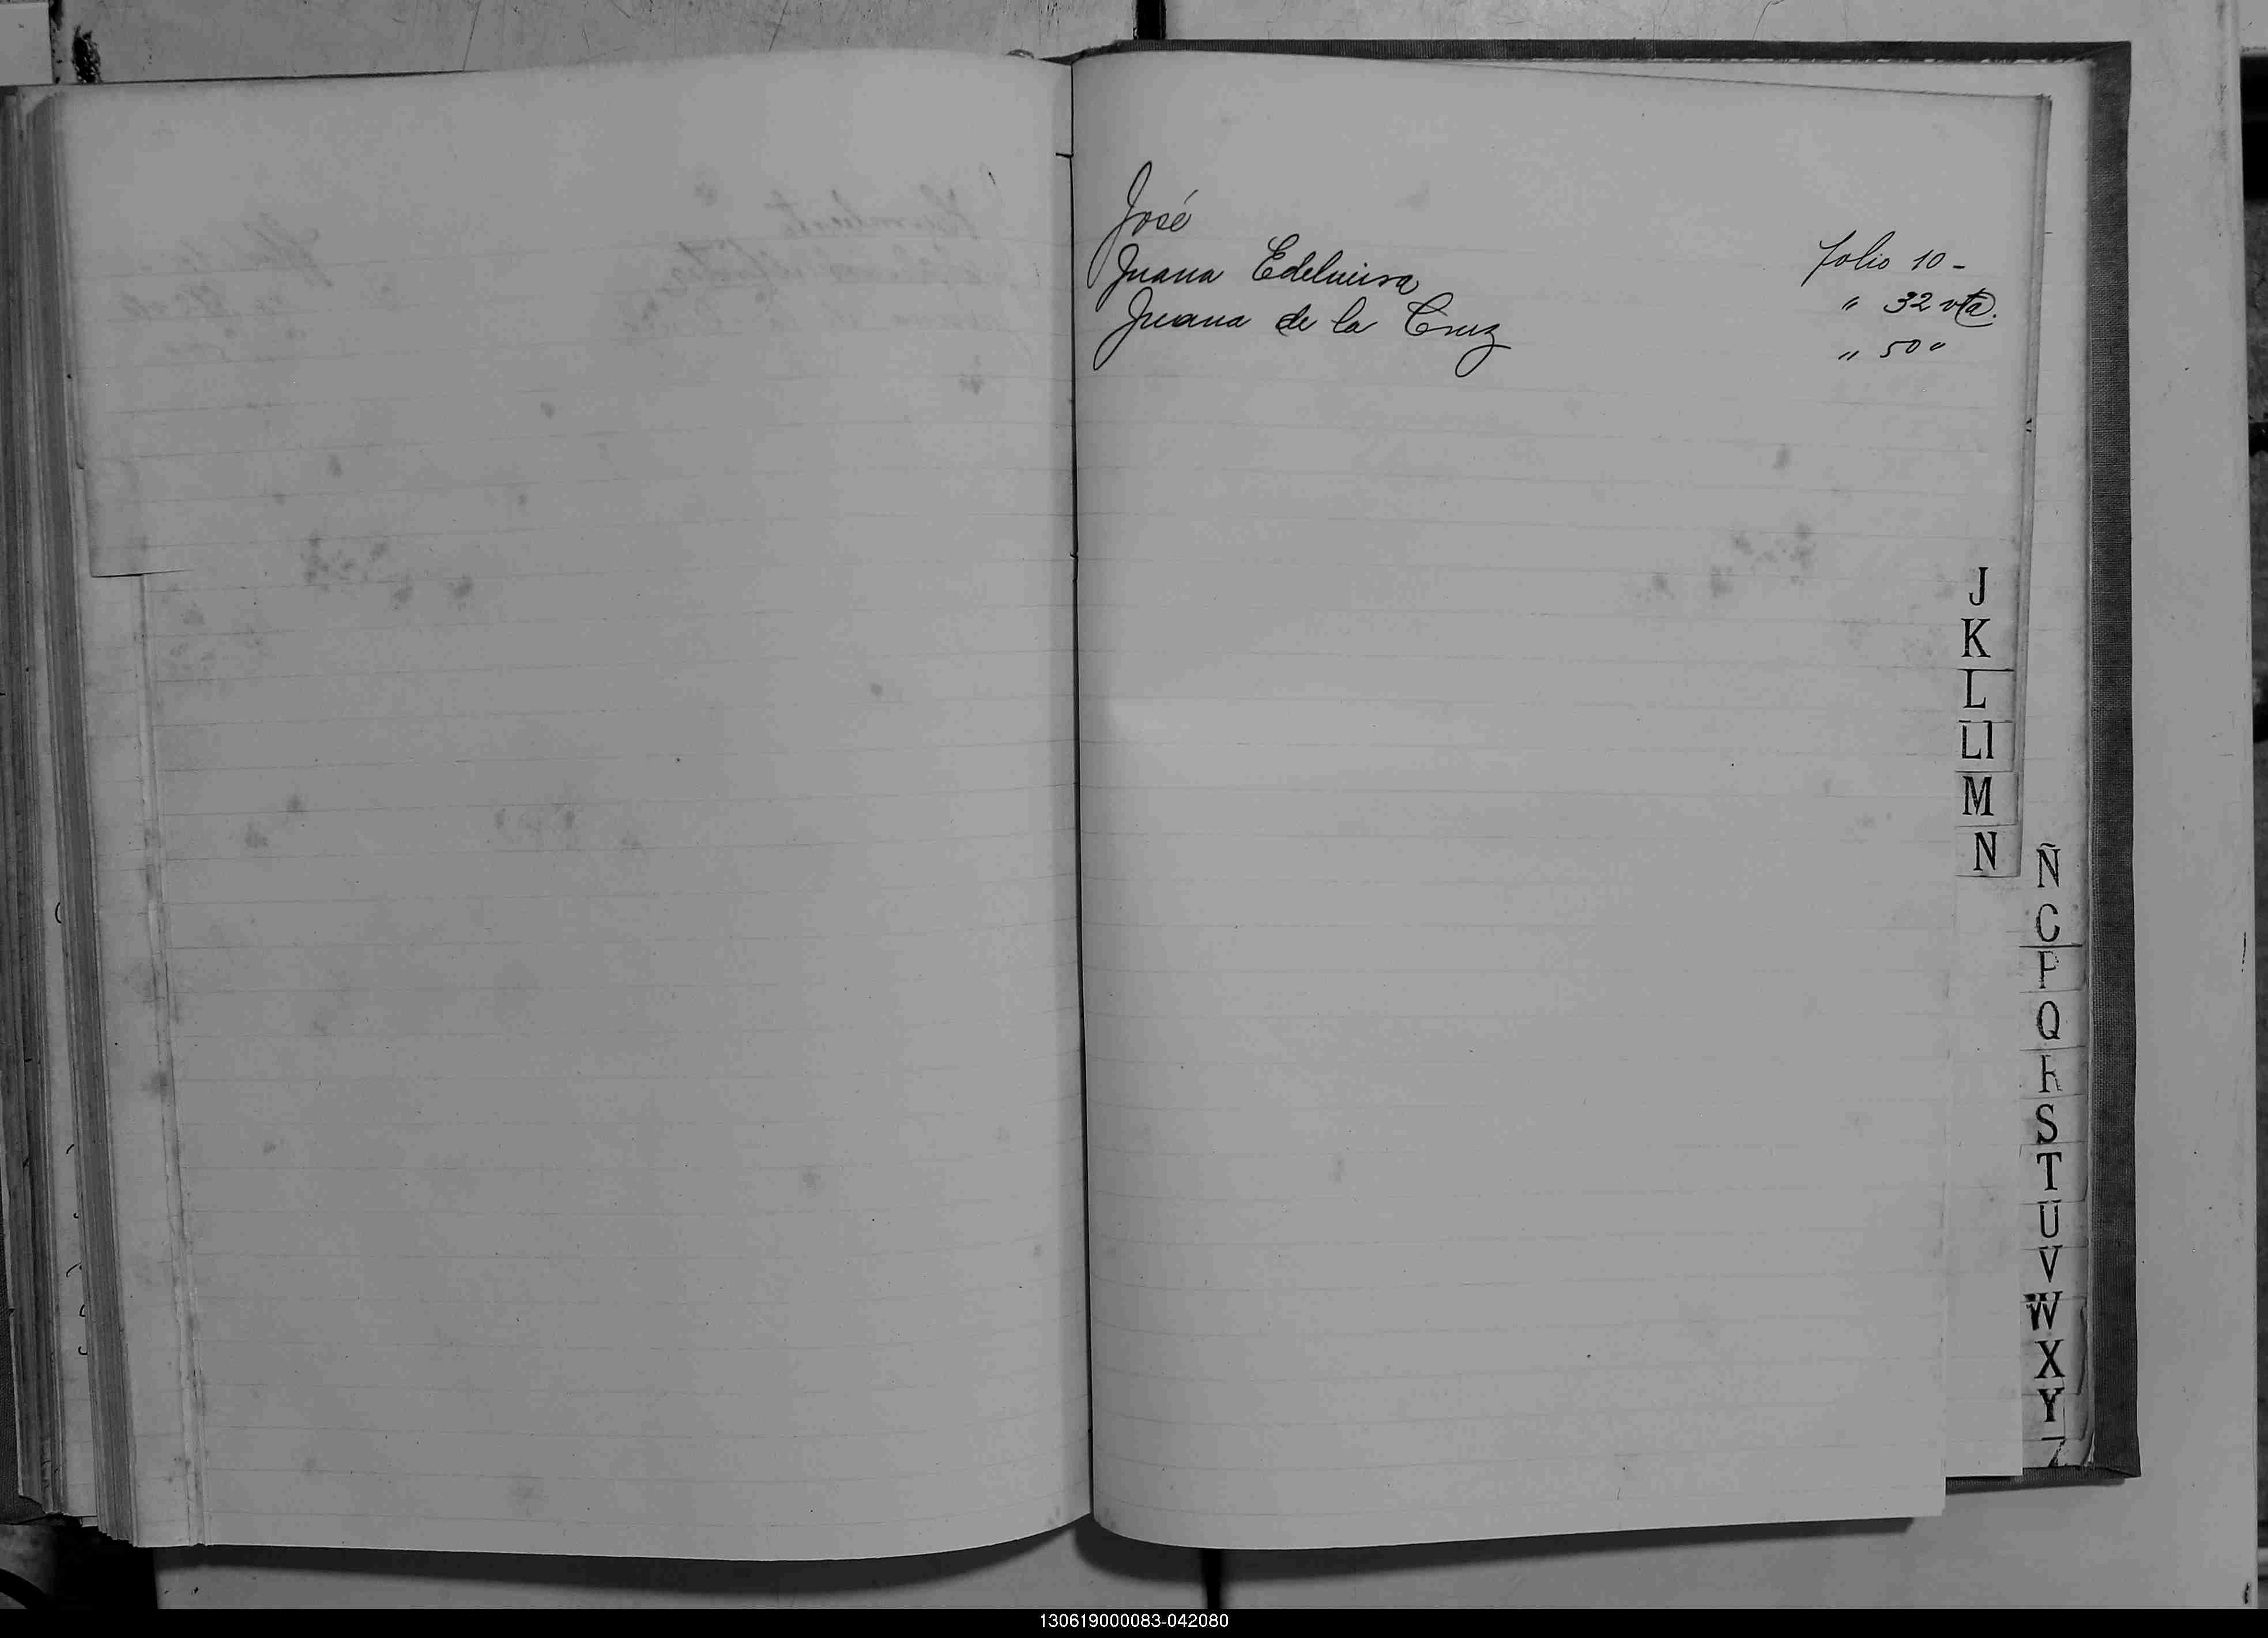 José folio 10 -
Juana Edelmira " 32 vta.
Juana de la Cruz " 50 "
J
K
L
Ll
M
N
Ñ
O
P
Q
R
S
T
U
V
W
X
Y
Z
130619000083-042080